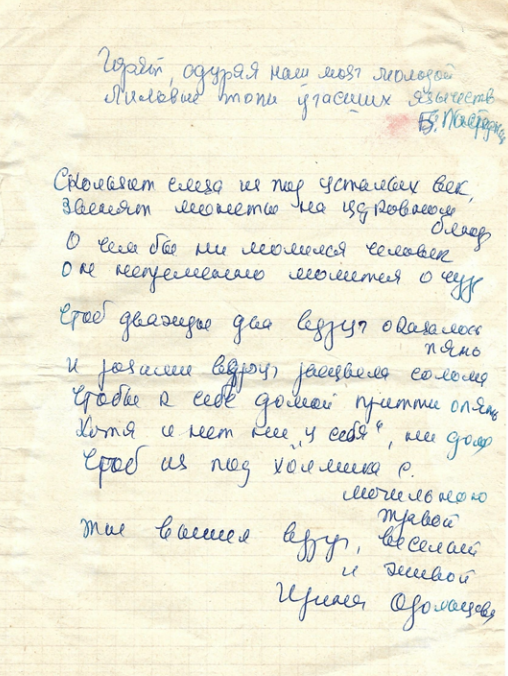 Горят, одуряя наш мозг молодой
Лиловые топи угасших язычеств
Б. Пастернак
Скользит слеза из под усталых век,
Звенят монеты на церковном
блюде
О чем бы ни молился человек
Он непременно молится о чуде
Чтоб дважды два вдруг оказалось
пять
И розами вдруг расцвела солома
Чтобы к себе домой притти опять
Хотя и нет ни „у себя“, ни дома
Чтоб из под холмика с
могильною
травой
Ты вышел вдруг, веселый
и живой
Ирина Одоевцева